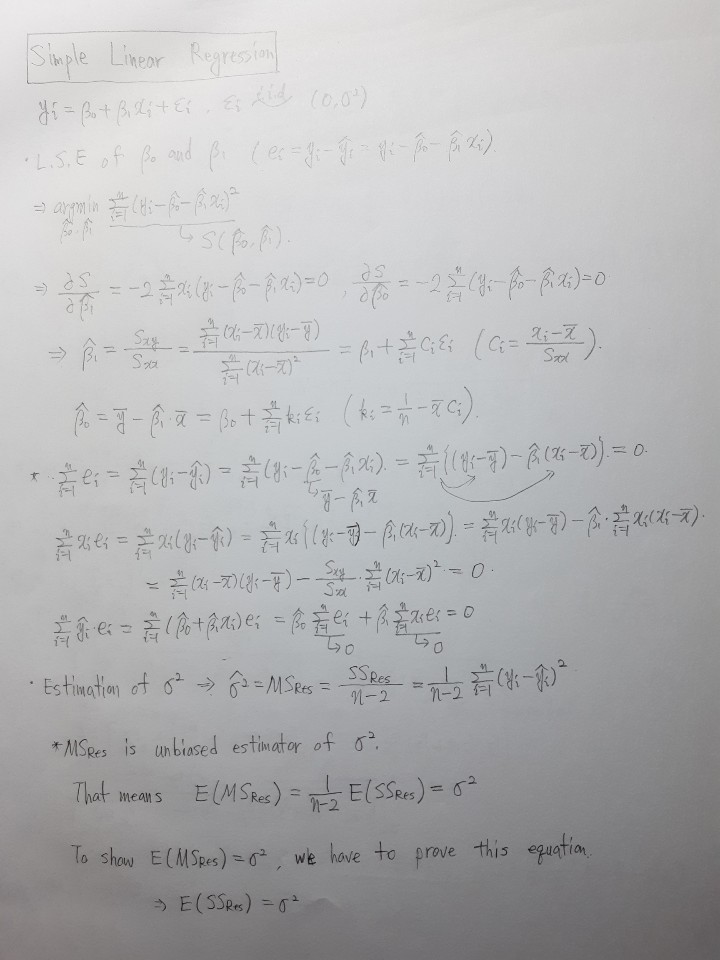 Simple Linear Regression
yᵢ = β₀ + β₁xᵢ + εᵢ , εᵢ iid (0, σ²)
· L.S.E of β₀ and β₁ ( eᵢ = yᵢ − ŷᵢ = yᵢ − β̂₀ − β̂₁xᵢ ).
⇒ argmin_{β̂₀, β̂₁} Σ_{i=1}^{n} (yᵢ − β̂₀ − β̂₁xᵢ)²
↳ S(β̂₀, β̂₁).
⇒ ∂S/∂β̂₁ = −2 Σ_{i=1}^{n} xᵢ(yᵢ − β̂₀ − β̂₁xᵢ) = 0 , ∂S/∂β̂₀ = −2 Σ_{i=1}^{n} (yᵢ − β̂₀ − β̂₁xᵢ) = 0
⇒ β̂₁ = Sxy/Sxx = Σ_{i=1}^{n} (xᵢ − x̄)(yᵢ − ȳ) / Σ_{i=1}^{n} (xᵢ − x̄)² = β₁ + Σ_{i=1}^{n} Cᵢεᵢ ( Cᵢ = (xᵢ − x̄)/Sxx ).
β̂₀ = ȳ − β̂₁·x̄ = β₀ + Σ_{i=1}^{n} kᵢεᵢ ( kᵢ = 1/n − x̄Cᵢ ).
* · Σ_{i=1}^{n} eᵢ = Σ_{i=1}^{n} (yᵢ − ŷᵢ) = Σ_{i=1}^{n} (yᵢ − β̂₀ − β̂₁xᵢ). = Σ_{i=1}^{n} {(yᵢ − ȳ) − β̂₁(xᵢ − x̄)}. = 0.
↳ ȳ − β̂₁x̄
Σ_{i=1}^{n} xᵢeᵢ = Σ_{i=1}^{n} xᵢ(yᵢ − ŷᵢ) = Σ_{i=1}^{n} xᵢ{(yᵢ − ȳ) − β̂₁(xᵢ − x̄)}. = Σ_{i=1}^{n} xᵢ(yᵢ − ȳ) − β̂₁· Σ_{i=1}^{n} xᵢ(xᵢ − x̄).
= Σ_{i=1}^{n} (xᵢ − x̄)(yᵢ − ȳ) − Sxy/Sxx · Σ_{i=1}^{n} (xᵢ − x̄)² = 0.
Σ_{i=1}^{n} ŷᵢ·eᵢ = Σ_{i=1}^{n} (β̂₀ + β̂₁xᵢ)eᵢ = β̂₀ Σ_{i=1}^{n} eᵢ + β̂₁ Σ_{i=1}^{n} xᵢeᵢ = 0
↳ 0 ↳ 0
· Estimation of σ² ⇒ σ̂² = MSRes = SSRes/(n−2) = 1/(n−2) Σ_{i=1}^{n} (yᵢ − ŷᵢ)²
* MSRes is unbiased estimator of σ².
That means E(MSRes) = 1/(n−2) E(SSRes) = σ²
To show E(MSRes) = σ², we have to prove this equation.
⇒ E(SSRes) = σ²